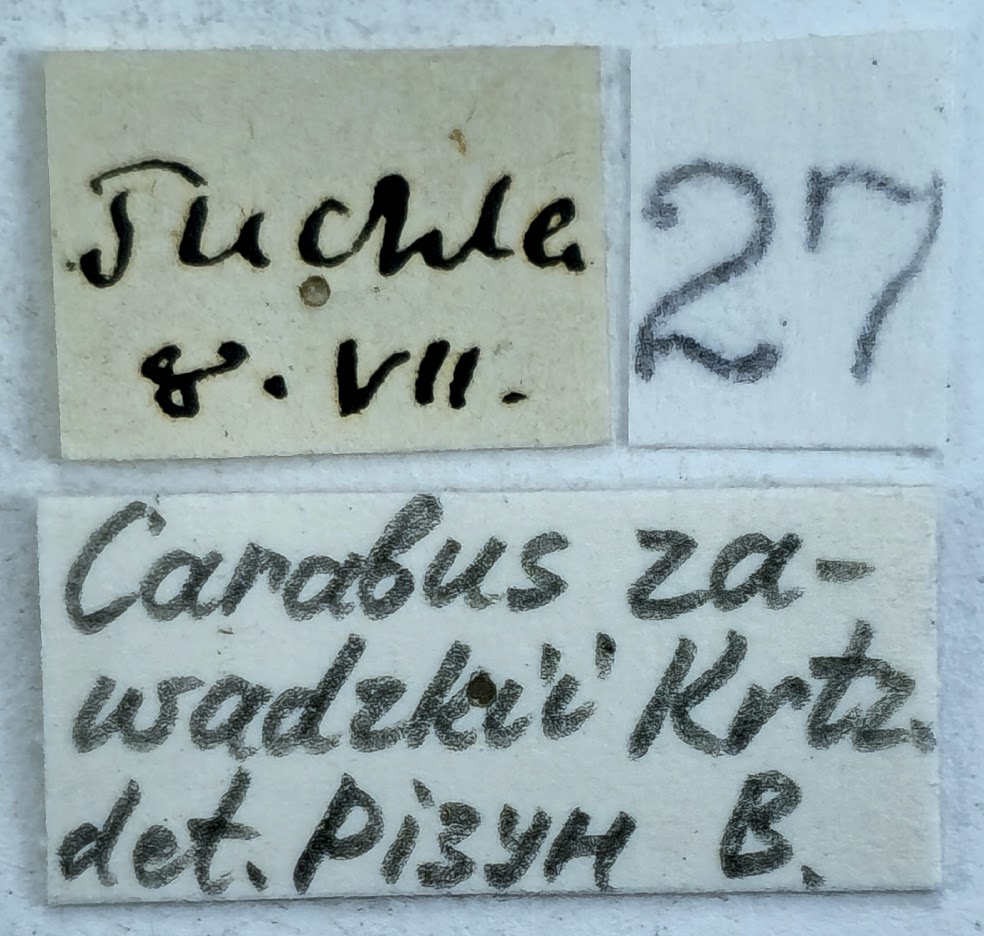 Tuchla
8. VII.
27
Carabus za-
wadzkii Krtz.
det. Різун В.